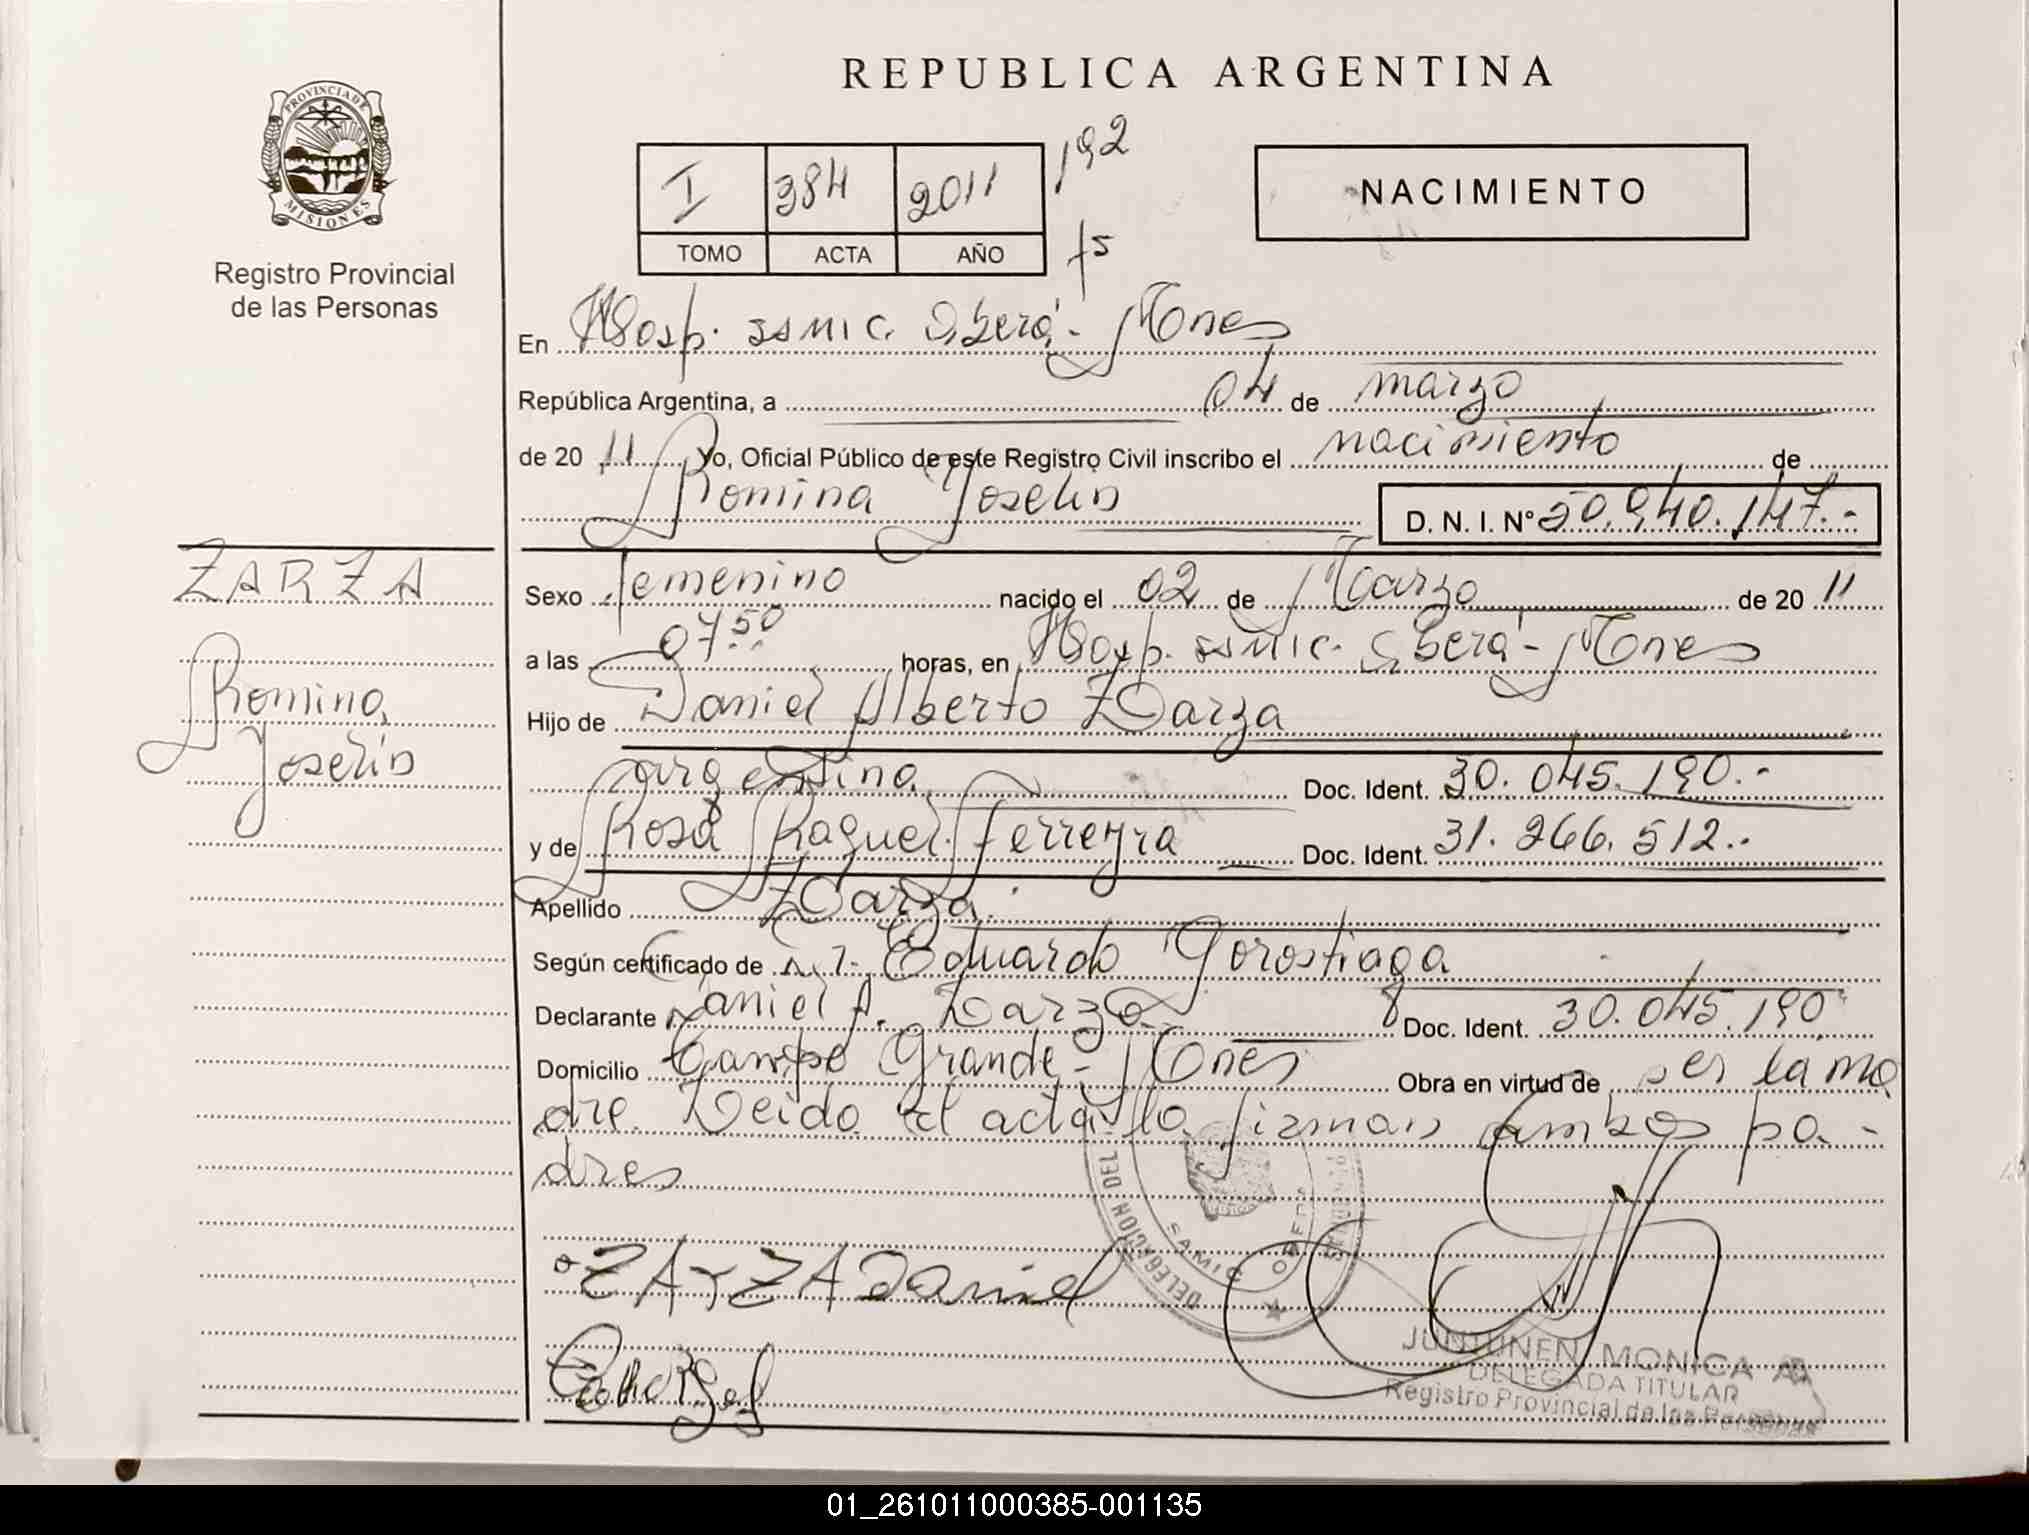 REPUBLICA ARGENTINA
PROVINCIA DE
MISIONES
Registro Provincial
de las Personas
I 384 2011 192
TOMO ACTA AÑO f5
NACIMIENTO
En Hosp. SAMIC. Oberá - Mones
República Argentina, a 04 de marzo
de 20 11 Yo, Oficial Público de este Registro Civil inscribo el nacimiento de
Romina Joselin D. N. I. N° 50.940.147.-
ZARZA
Romina
Joselin
Sexo femenino nacido el 02 de Marzo de 20 11
a las 07 50 horas, en Hosp. SAMIC. Oberá - Mones
Hijo de Daniel Alberto Zarza
argentina Doc. Ident. 30.045.190.-
y de Rosa Raquel Ferreyra Doc. Ident. 31.266.512.-
Apellido Zarza.
Según certificado de Eduardo Gorostiaga
Declarante Daniel A. Zarza Doc. Ident. 30.045.190
Domicilio Campo Grande - Mones Obra en virtud de ser la ma
dre. Leido el acta la firman ambos pa-
dres
DELEGACION DEL
SAMIC OBERA
ZARZA Daniel
JUNTUNEN MONICA A.
DELEGADA TITULAR
Registro Provincial de las Personas
01_261011000385-001135